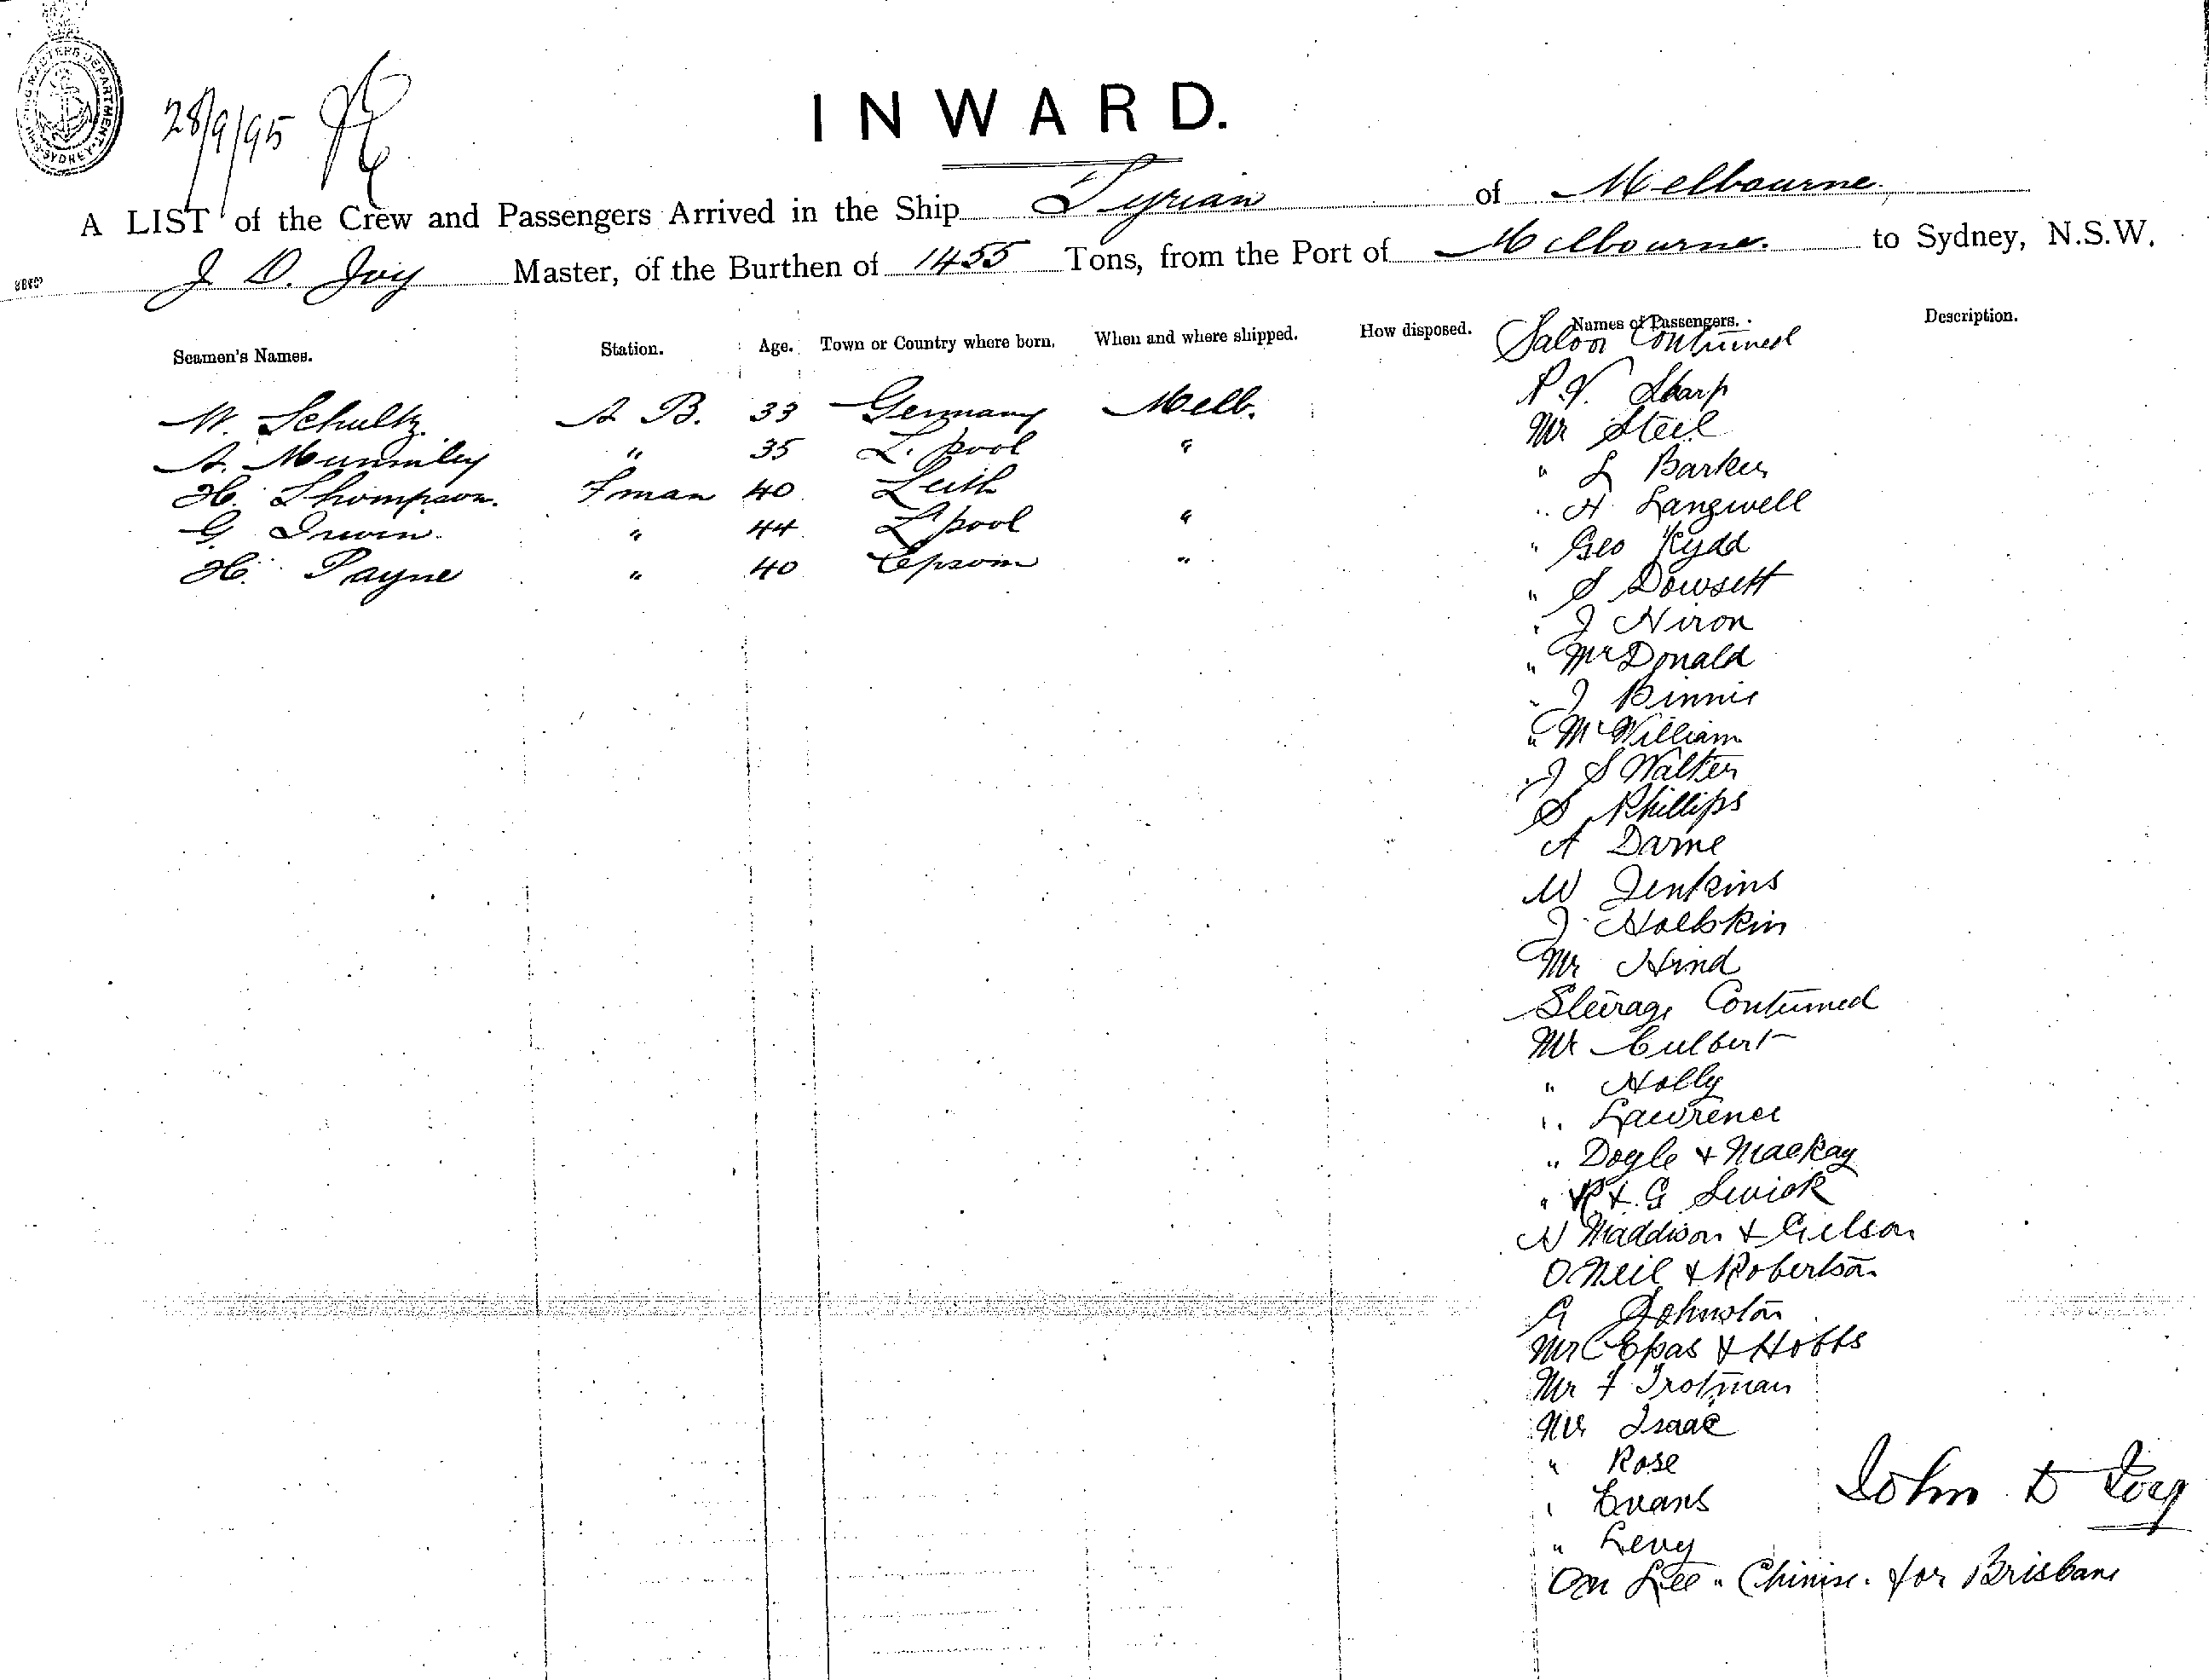 SHIPPING MASTER'S DEPARTMENT. SYDNEY
28/9/95
INWARD.
A LIST of the Crew and Passengers Arrived in the Ship Tyrian of Melbourne
J D. Joy Master, of the Burthen of 1455 Tons, from the Port of Melbourne to Sydney, N.S.W.
Seamen's Names. Station. Age. Town or Country where born. When and where shipped. How disposed. Names of Passengers. Description.
Saloon Continued
W. Schultz. A B. 33 Germany Melb.
A. " 35 L. pool "
H. Thompson. Fman 40 Leith
G. Irwin. " 44 L'pool "
H. Payne " 40 Epsom "
P. V. Sharp
Mr Steil
" L Barker
" A Langwell
" Geo Kydd
" S Dowsett
" J Nixon
" McDonald
" J Binnie
" McWilliam
" J S Walter
S Phillips
A Darne
W Jenkins
J
Mr Hind
Steerage Continued
Mr Culbert
" Holly
" Lawrence
" Doyle & Mackay
" R & G
N Maddison & Gilson
O Neil & Robertson
A Johnston
Mr C Epas & Hobbs
Mr F Trotman
Mr Isaac
" Rose
" Evans
" Levy
On Lee " Chinese. for Brisbane
John D Joy